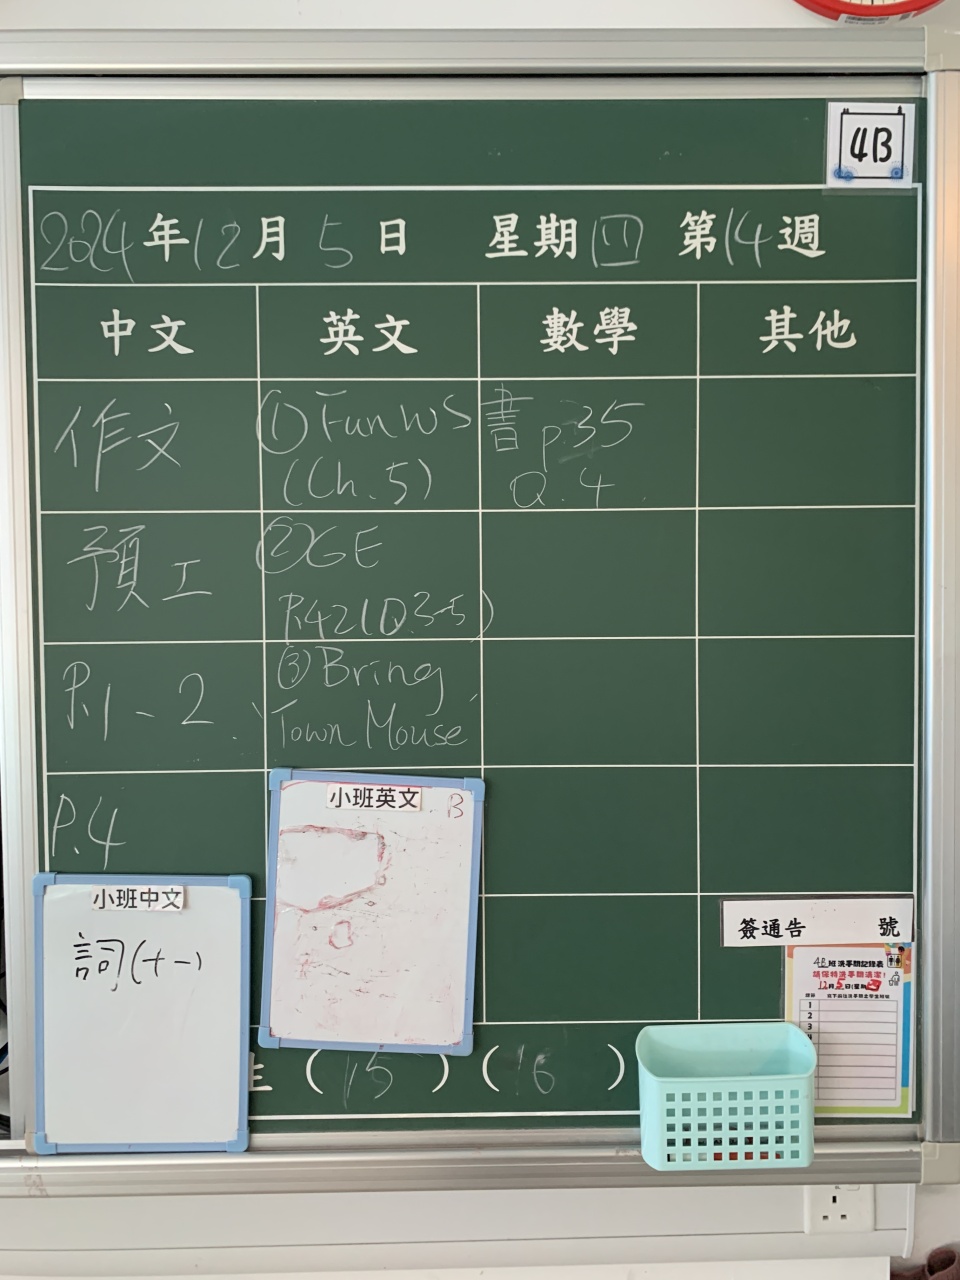 4B
2024年12月5日 星期四 第14週
中文 英文 數學 其他
作文
① Fun WS
(Ch.5)
書 p.35
Q.4
預工
② GE
P.42(Q.3-5)
P.1-2
③ Bring
Town Mouse
P.4
小班英文 B
小班中文
詞(十一)
簽通告 號
4B班洗手間記錄表
請保持洗手間清潔!
12月5日(星期
1
2
3
生 (15) (16)